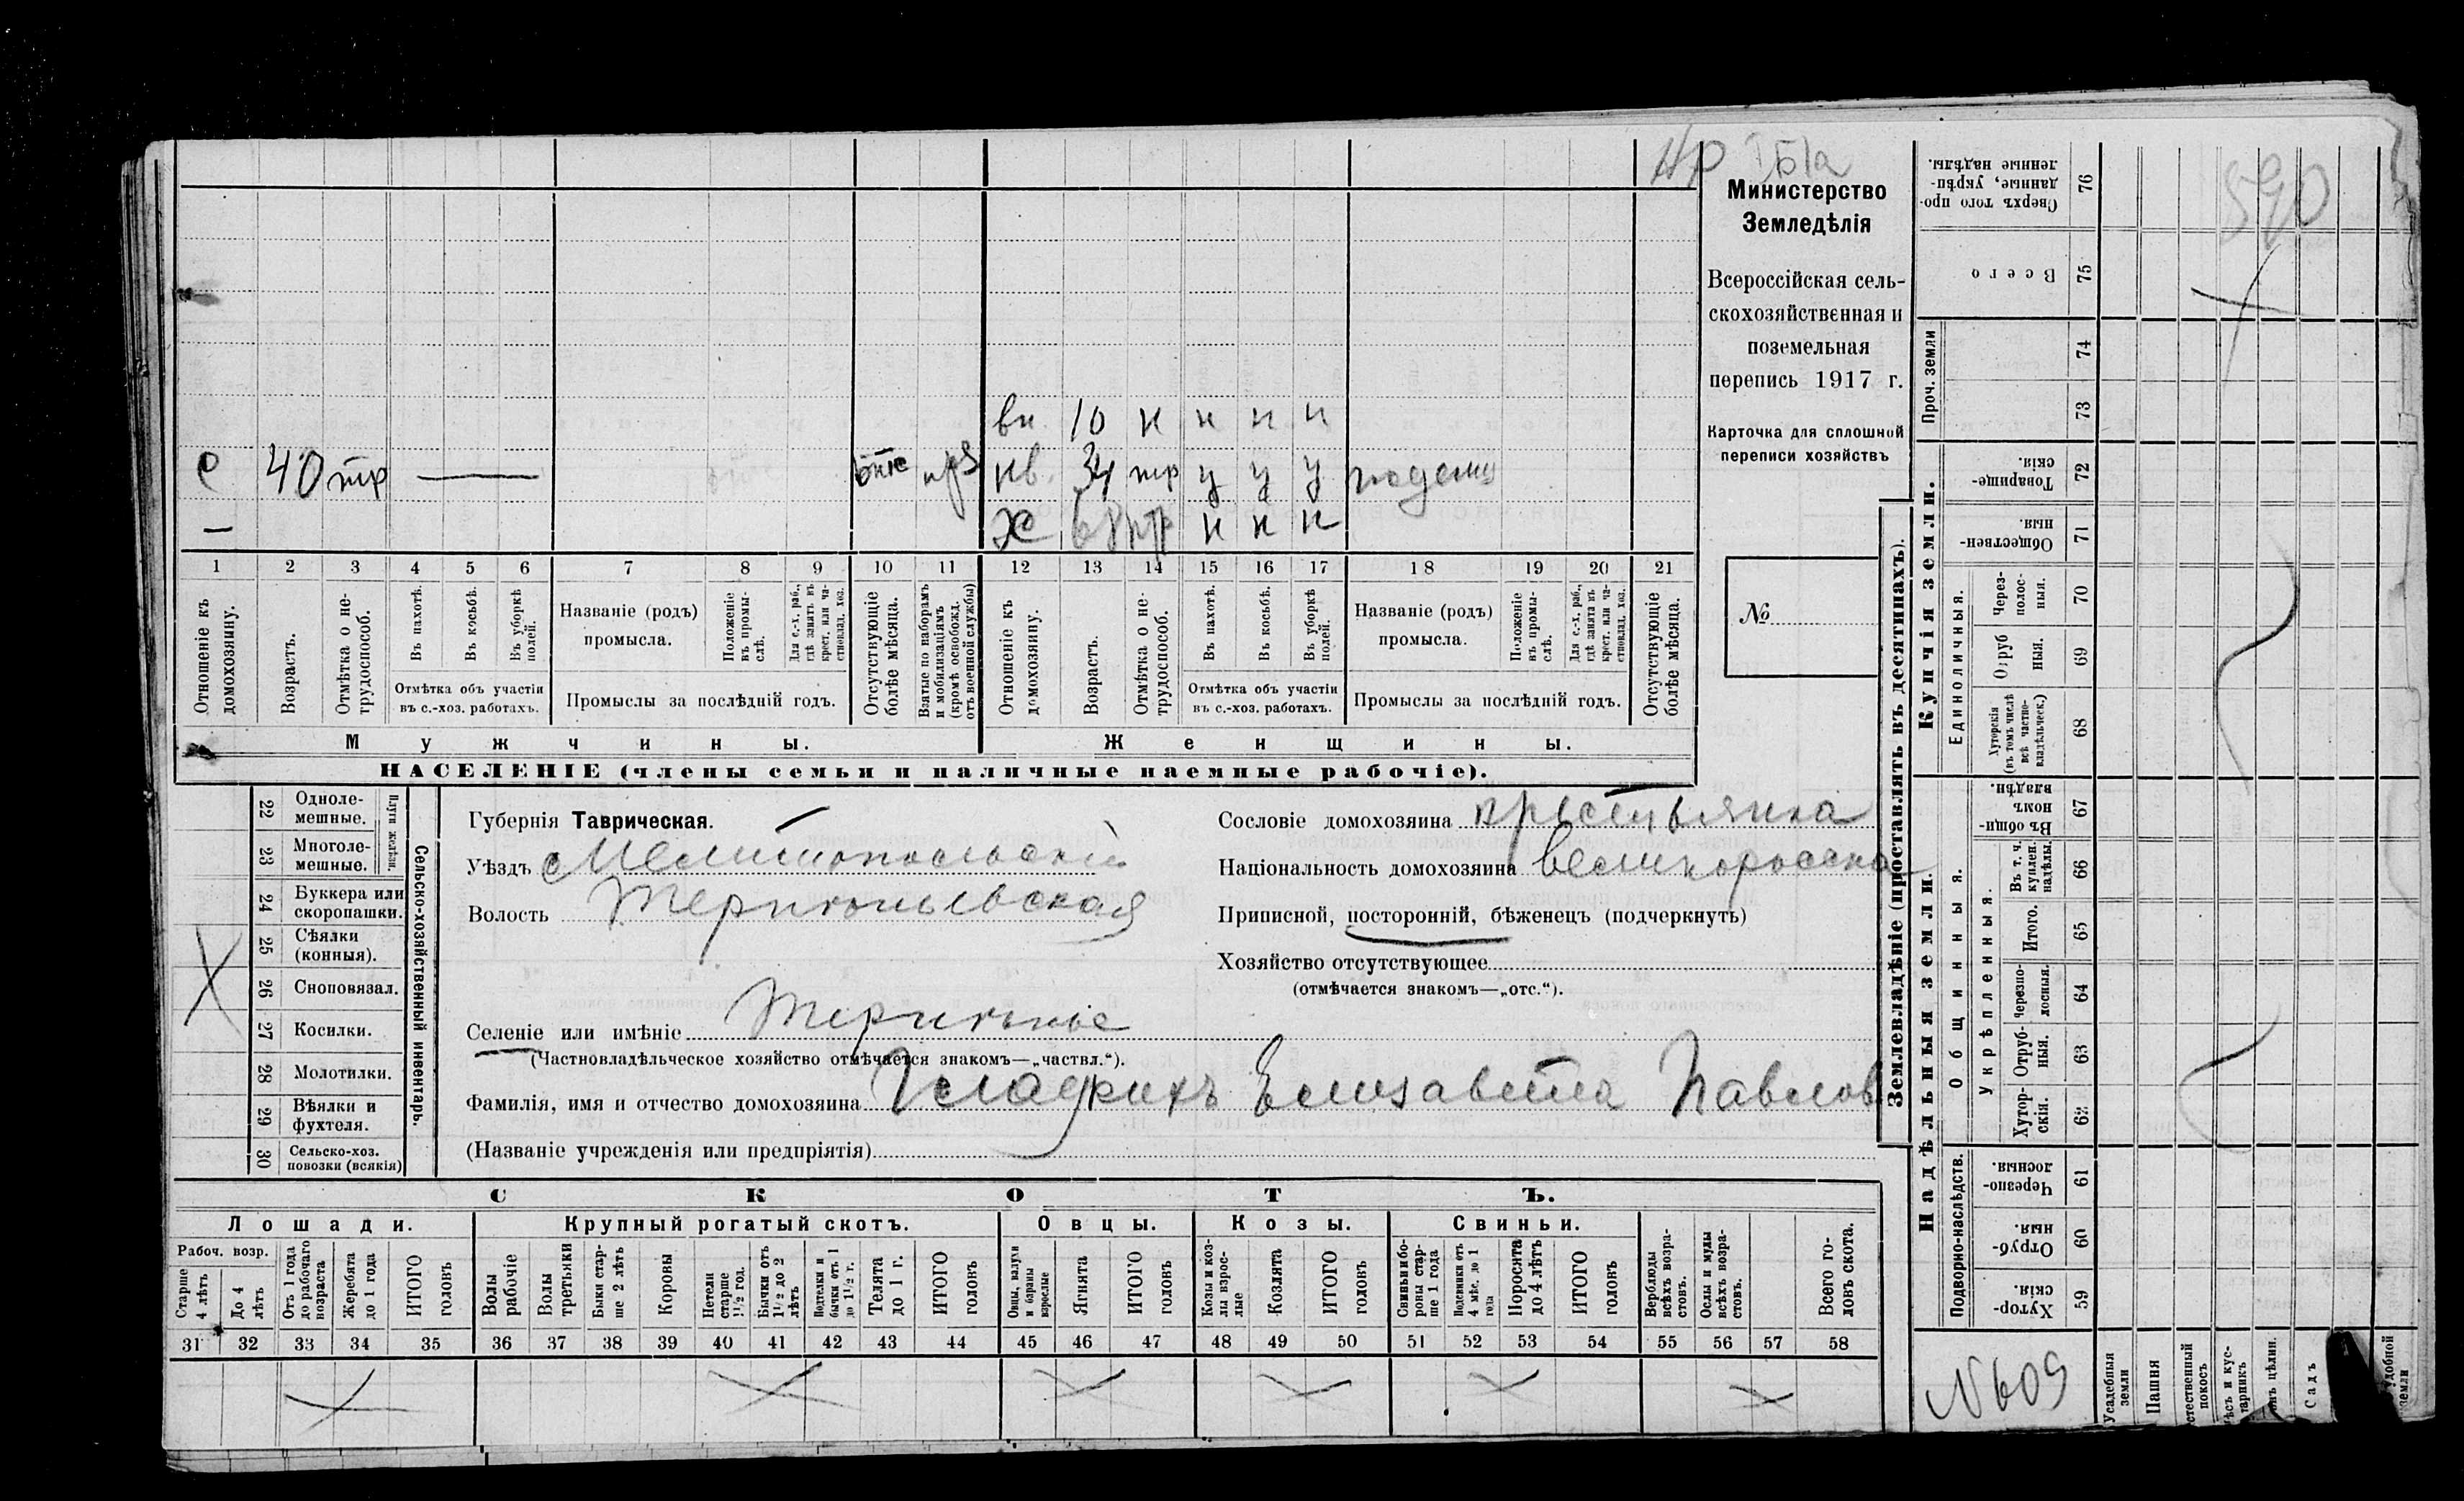 Министерство
Земледѣлія
Всероссійская сель-
скохозяйственная и
поземельная
перепись 1917 г.
Карточка для сплошной
переписи хозяйствъ
№
вн 10 н н н н
с 40 тр — нв. 34 тр у у у
— х 68 н н н
1 2 3 4 5 6 7 8 9 10 11 12 13 14 15 16 17 18 19 20 21
Отношеніе къ домохозяину.
Возрастъ.
Отмѣтка о не-трудоспособ.
Въ пахотѣ.
Въ косьбѣ.
Въ уборкѣ полей.
Отмѣтка объ участіи
въ с.-хоз. работахъ.
Названіе (родъ)
промысла.
Положеніе въ промы-слѣ.
Для с.-х. раб., гдѣ занятъ въ крест. или ча-стновлад. хоз.
Промыслы за послѣдній годъ.
Отсутствующіе болѣе мѣсяца.
Взятые по наборамъ и мобилизаціямъ (кромѣ освобожд. отъ военной службы)
Отношеніе къ домохозяину.
Возрастъ.
Отмѣтка о не-трудоспособ.
Въ пахотѣ.
Въ косьбѣ.
Въ уборкѣ полей.
Отмѣтка объ участіи
въ с.-хоз. работахъ.
Названіе (родъ)
промысла.
Положеніе въ промы-слѣ.
Для с.-х. раб., гдѣ занята въ крест. или ча-стновлад. хоз.
Промыслы за послѣдній годъ.
Отсутствующіе болѣе мѣсяца.
Мужчины.
Женщины.
НАСЕЛЕНІЕ (члены семьи и наличные наемные рабочіе).
Сельско-хозяйственный инвентарь.
22 Однолемешные.
23 Многолемешные.
24 Буккера или скоропашки.
25 Сѣялки (конныя).
26 Сноповязал.
27 Косилки.
28 Молотилки.
29 Вѣялки и фухтеля.
30 Сельско-хоз. повозки (всякія)
Губернія Таврическая.
Уѣздъ Мелитопольскій
Волость Терпѣньевская
Селеніе или имѣніе Терпѣніе
(Частновладѣльческое хозяйство отмѣчается знакомъ—„частвл.“).
Сословіе домохозяина крестьянка
Національность домохозяина великоросска
Приписной, посторонній, бѣженецъ (подчеркнуть)
Хозяйство отсутствующее
(отмѣчается знакомъ—„отс.“).
Фамилія, имя и отчество домохозяина Елизавета Павлов
(Названіе учрежденія или предпріятія)
СКОТЪ.
Лошади. Крупный рогатый скотъ. Овцы. Козы. Свиньи.
Рабоч. возр.
Старше 4 лѣтъ
До 4 лѣтъ
Отъ 1 года до рабочаго возраста
Жеребята до 1 года
ИТОГО головъ
Волы рабочіе
Волы третьяки
Быки стар-ше 2 лѣтъ
Коровы
Нетели старше 1½ год.
Бычки отъ 1½ до 2 лѣтъ
Подтелки и бычки отъ 1 до 1½ г.
Телята до 1 г.
ИТОГО головъ
Овцы, валухи и бараны взрослые
Ягнята
ИТОГО головъ
Козы и коз-лы взрос-лые
Козлята
ИТОГО головъ
Свиньи и бо-ровы стар-ше 1 года
Подсвинки отъ 4 мѣс. до 1 года
Поросята до 4 лѣтъ
ИТОГО головъ
Верблюды всѣхъ возра-стовъ.
Ослы и мулы всѣхъ возра-стовъ.
Всего го-ловъ скота.
31 32 33 34 35 36 37 38 39 40 41 42 43 44 45 46 47 48 49 50 51 52 53 54 55 56 57 58
Землевладѣніе (проставлять въ десятинахъ).
Купчія земли.
Надѣльныя земли.
76 Сверхъ того про-данные, укрѣп-ленные надѣлы.
75 Всего
Проч. земли
74
73
72 Товарище-скія.
71 Обществен-ныя.
Единоличныя.
70 Через-полос-ныя.
69 Отруб ныя.
68 Хуторскія (въ томъ числѣ всѣ частно-владѣльческ.)
Общинныя.
67 Въ общи-номъ владѣн.
Укрѣпленныя.
66 Въ т. ч. куплен. надѣлы.
65 Итого.
64 Черезпо-лосныя.
63 Отруб-ныя.
62 Хутор-скія.
Подворно-наслѣдств.
61 Черезпо-лосныя.
60 Отруб-ныя.
59 Хутор-скія.
Усадебныя земли
Пашня
стественный покосъ
ѣсъ и кус-тарникъ
Садъ
удобной земли
590
№609